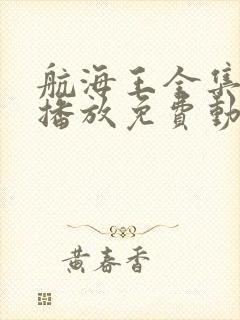 航海王全集
播放免費動
黄春香